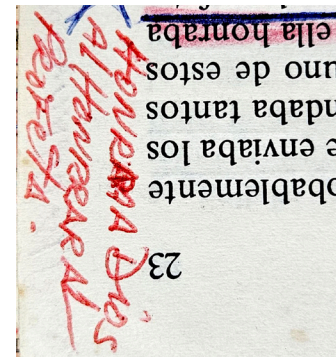 23
obablemente
e enviaba los
ndaba tantos
uno de estos
ella honraba
HONRA A Dios
Al HONRRAR AL
PROFETA.